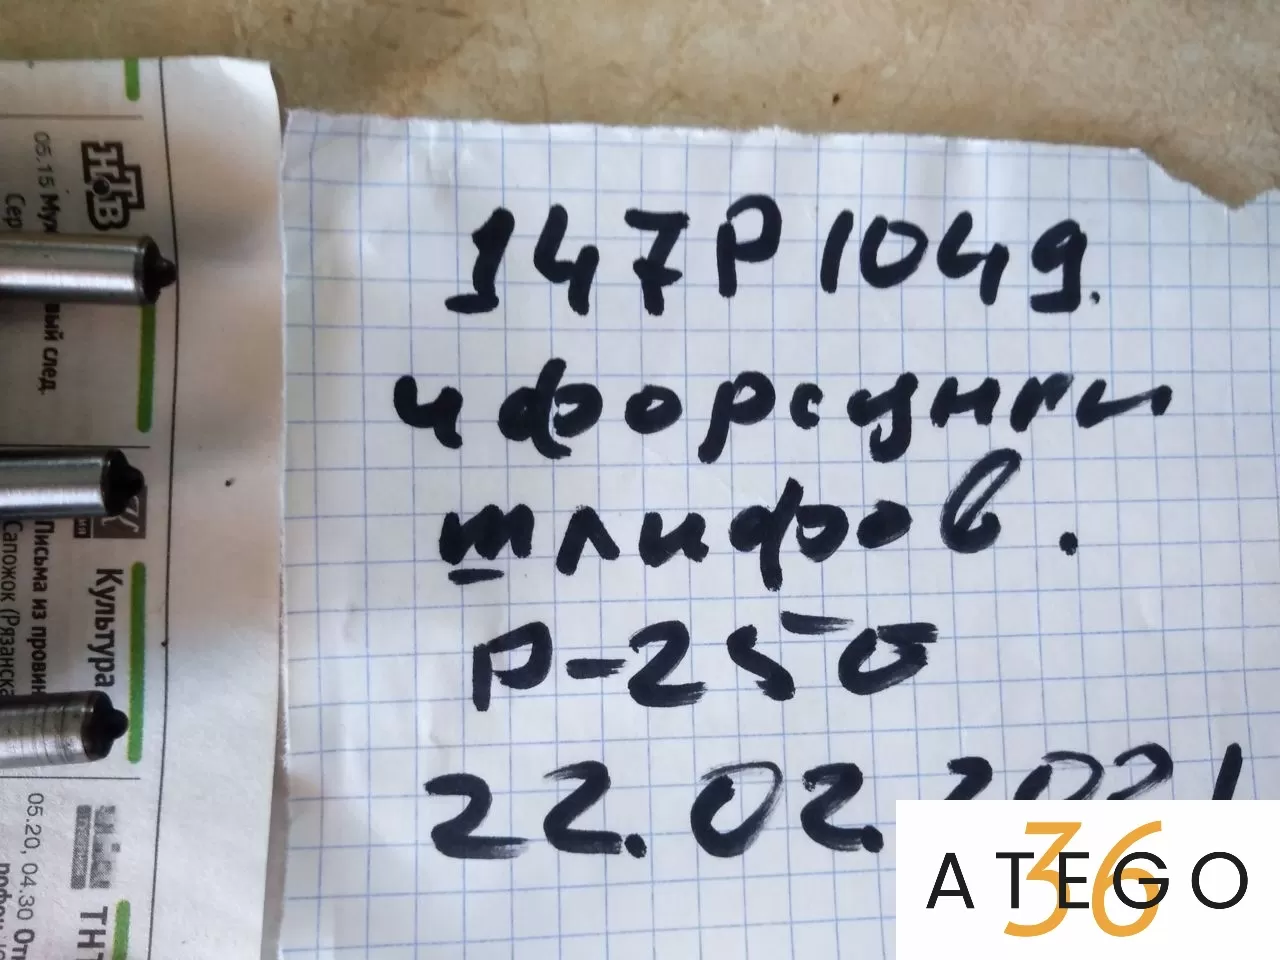 147P1049.
4 форсунки
шлифов.
P-250
22.02.2021
ATEGO
36
НТВ
вый след.
Культура
Письма из провин
Сапожок (Рязанска
05.20, 04.30 От
ТНТ
05.15 Мух
Сер